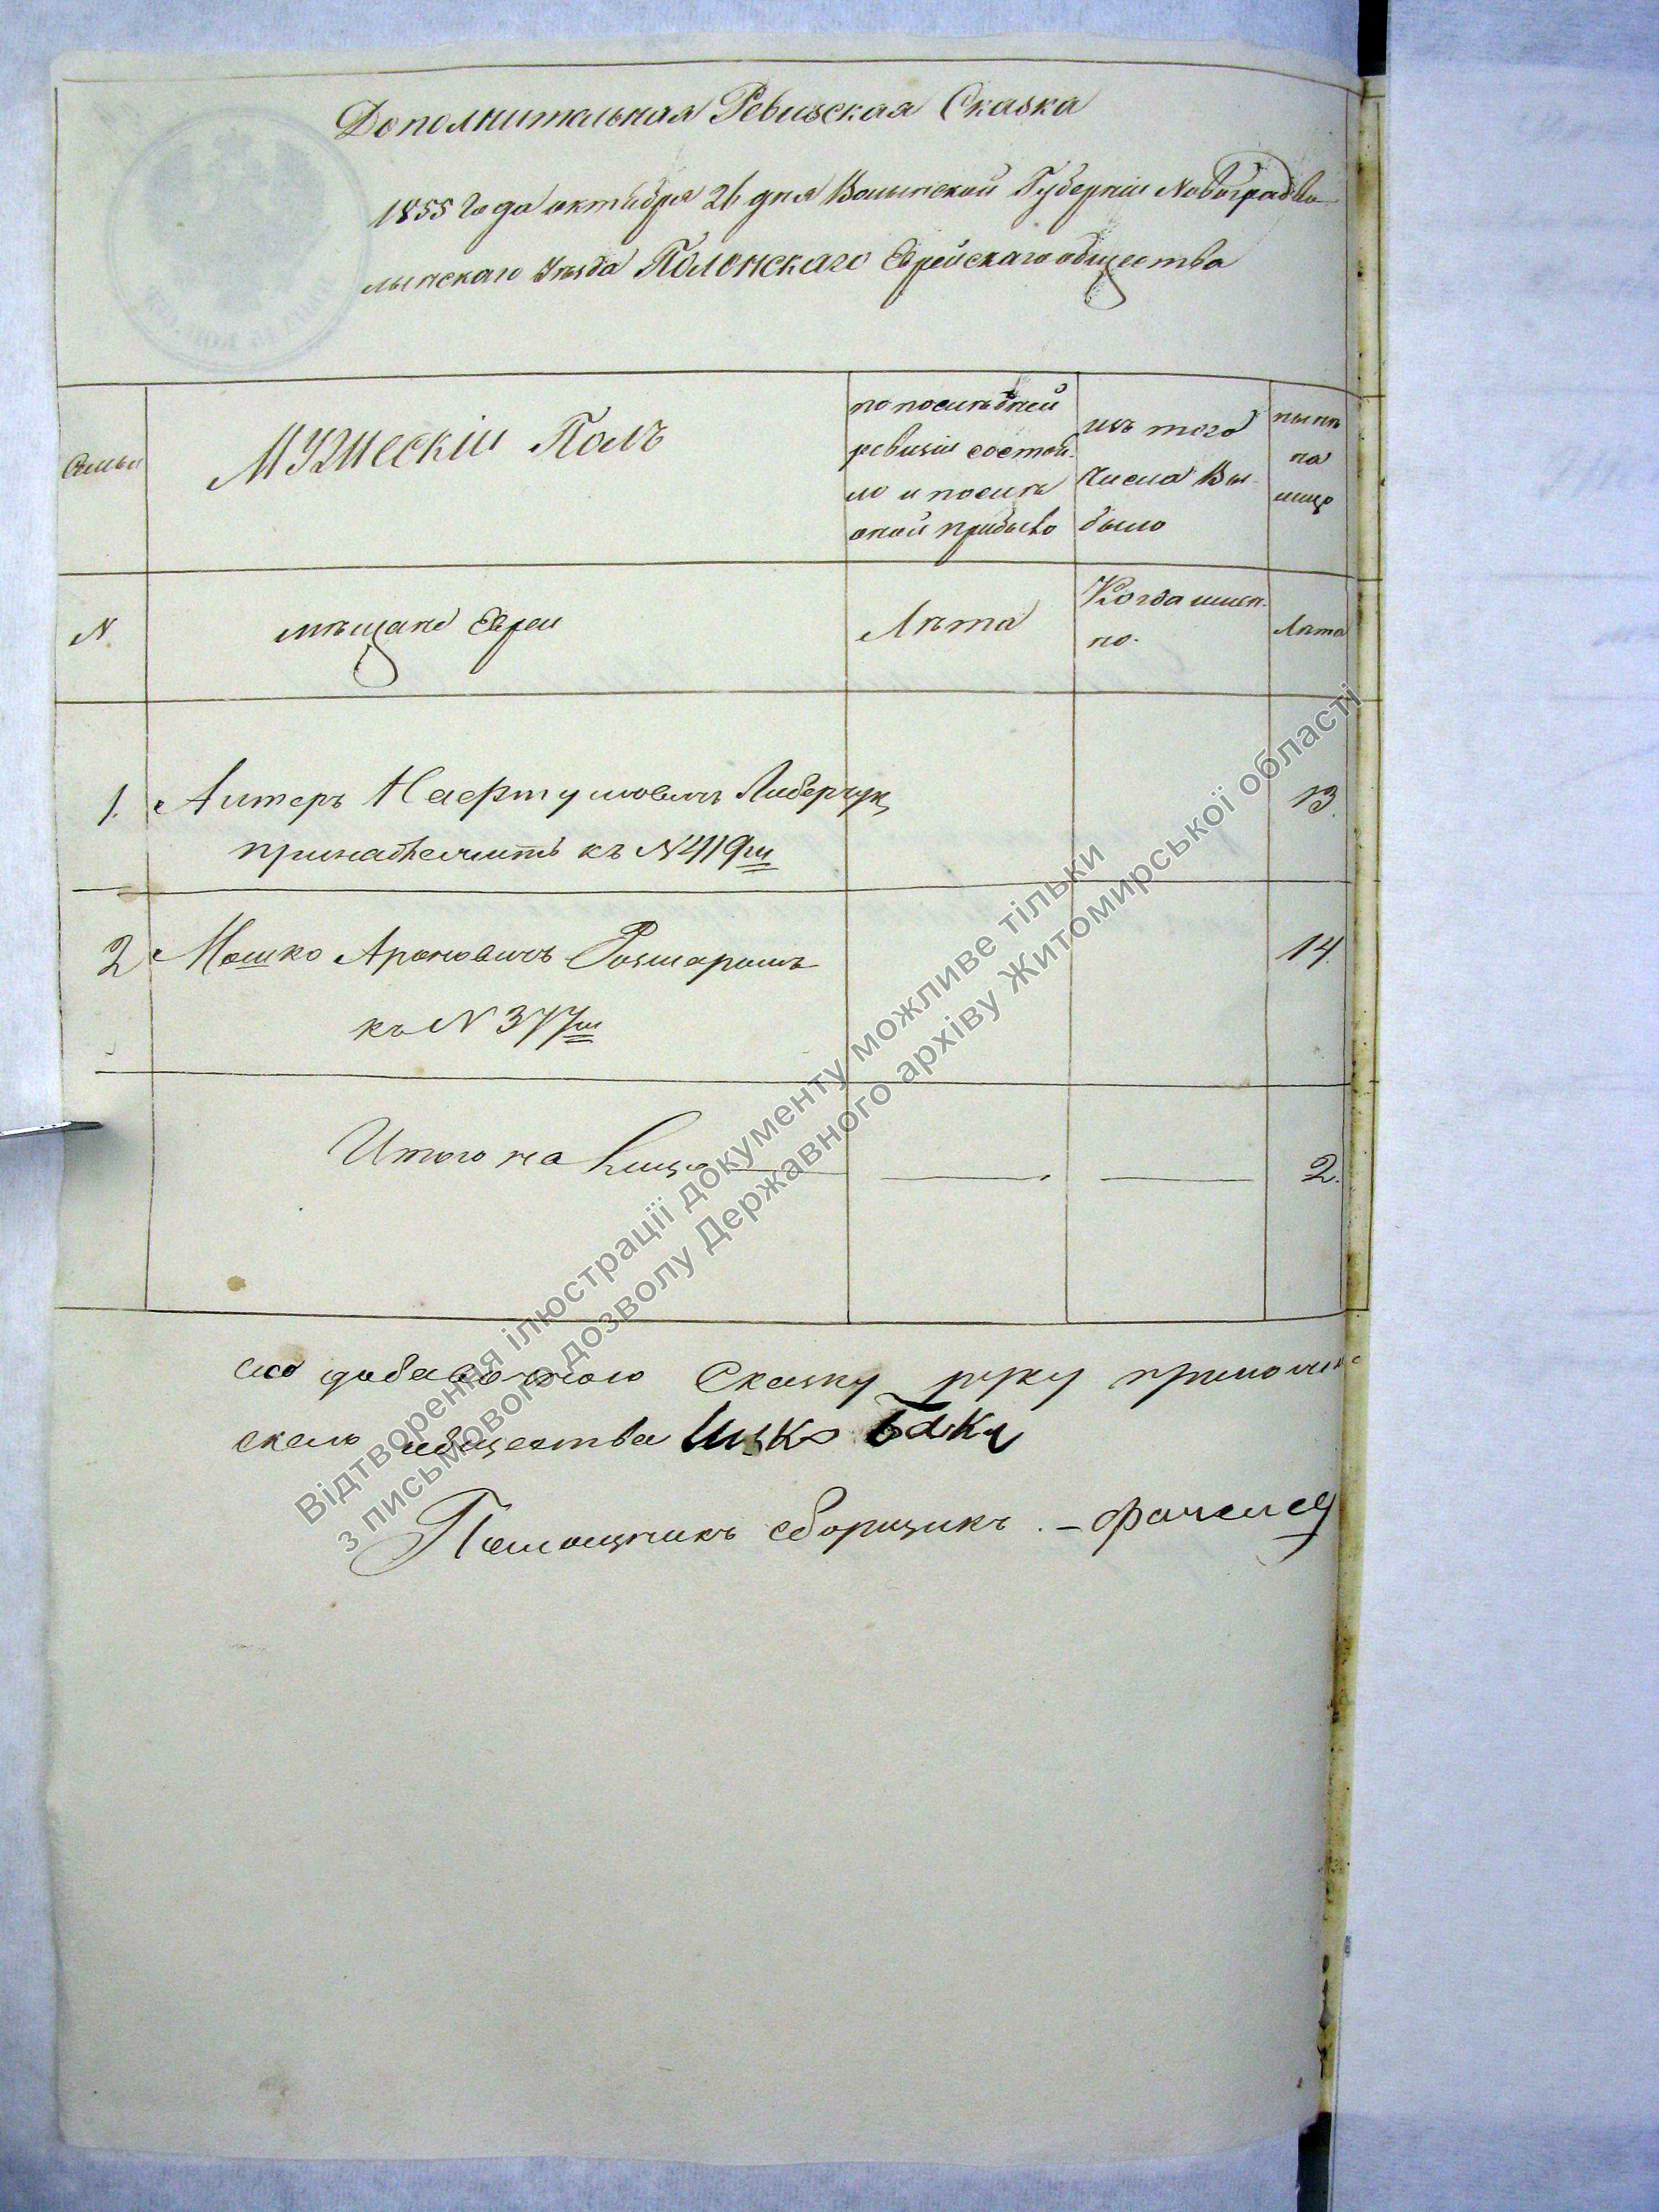 Дополнительная Ревизская Сказка
1855 Года октября 26 дня Волынской Губерніи Новоградво-
лынскаго Уѣзда Полонскаго Еврейскаго общества
Семьи
Мужескій Полъ
по послѣдней
ревизіи состоя-
ло и послѣ
оной прибыло
изъ того
числа Вы-
было
нынѣ
на
лицо
N.
мѣщане Евреи
Лѣта
Когда имен-
но.
Лѣта
1. Алтеръ Нафтуловичъ
принадлежитъ къ N 419му
13.
2 Мошко Ароновичъ
къ N 377му
14.
Итого на лицо
2.
добавочною Сказку руку прилож
общества Ицко
Помощникъ сборщикъ. –
Відтворення ілюстрації документу можливе тільки
з письмового дозволу Державного архіву Житомирської області